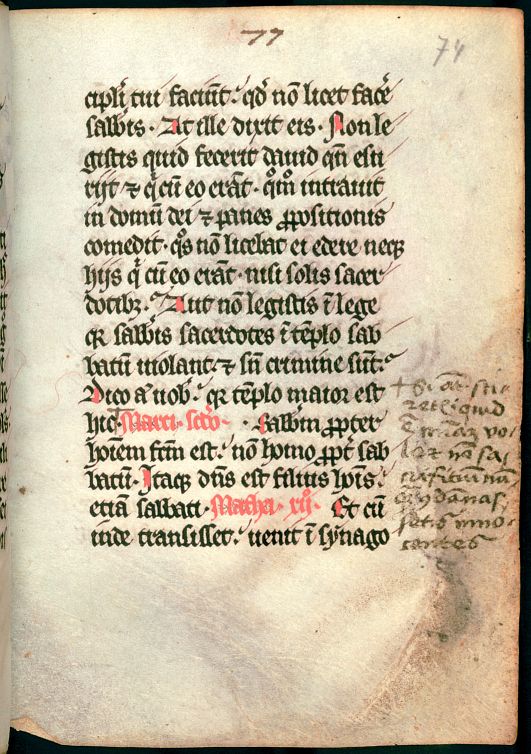 77
74
cipl'i tui faciu͞t. qd̕ nō licet face͞
sab͞bis · At ille dixit eis · Non le
gistis quid fecerit dauid qn̄ esu
rijt · ⁊ q̕ cū eo erāt · qm̄ intrauit
in domū dei ⁊ panes ꝓpositionis
comedit · qo̕s nō licebat ei edere neqꝫ
hijs q̕ cū eo erāt · nisi solis sacer
dotibꝫ. Aut nō legistis ī lege
qꝛ sab͞bis sacerdotes ī tēplo sab
batū uiolant · ⁊ sn̄ crimine sūt.
Dico a̕ uob̕ · qꝛ tēplo maior est
hic · Marci · scd̕o · Sabb̄m ꝓpter
hoīem fc̄m est · nō homo ꝓpt̕ sab
batū · Itaqꝫ dn̄s est filius hoīs ·
etiā sabbati · Mathei · xij · Et cū
inde transisset · uenit ī synago
+ Si at̄ sci-
retis quid
ē mīam vo-
lo et nō sa-
crificiū nū
qd̄ danas
setis inno
centes